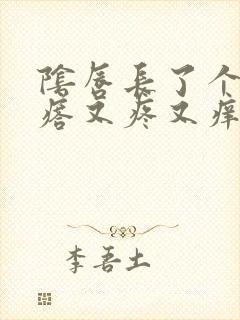 陰唇長了个
痞又疼又痒
李吾土